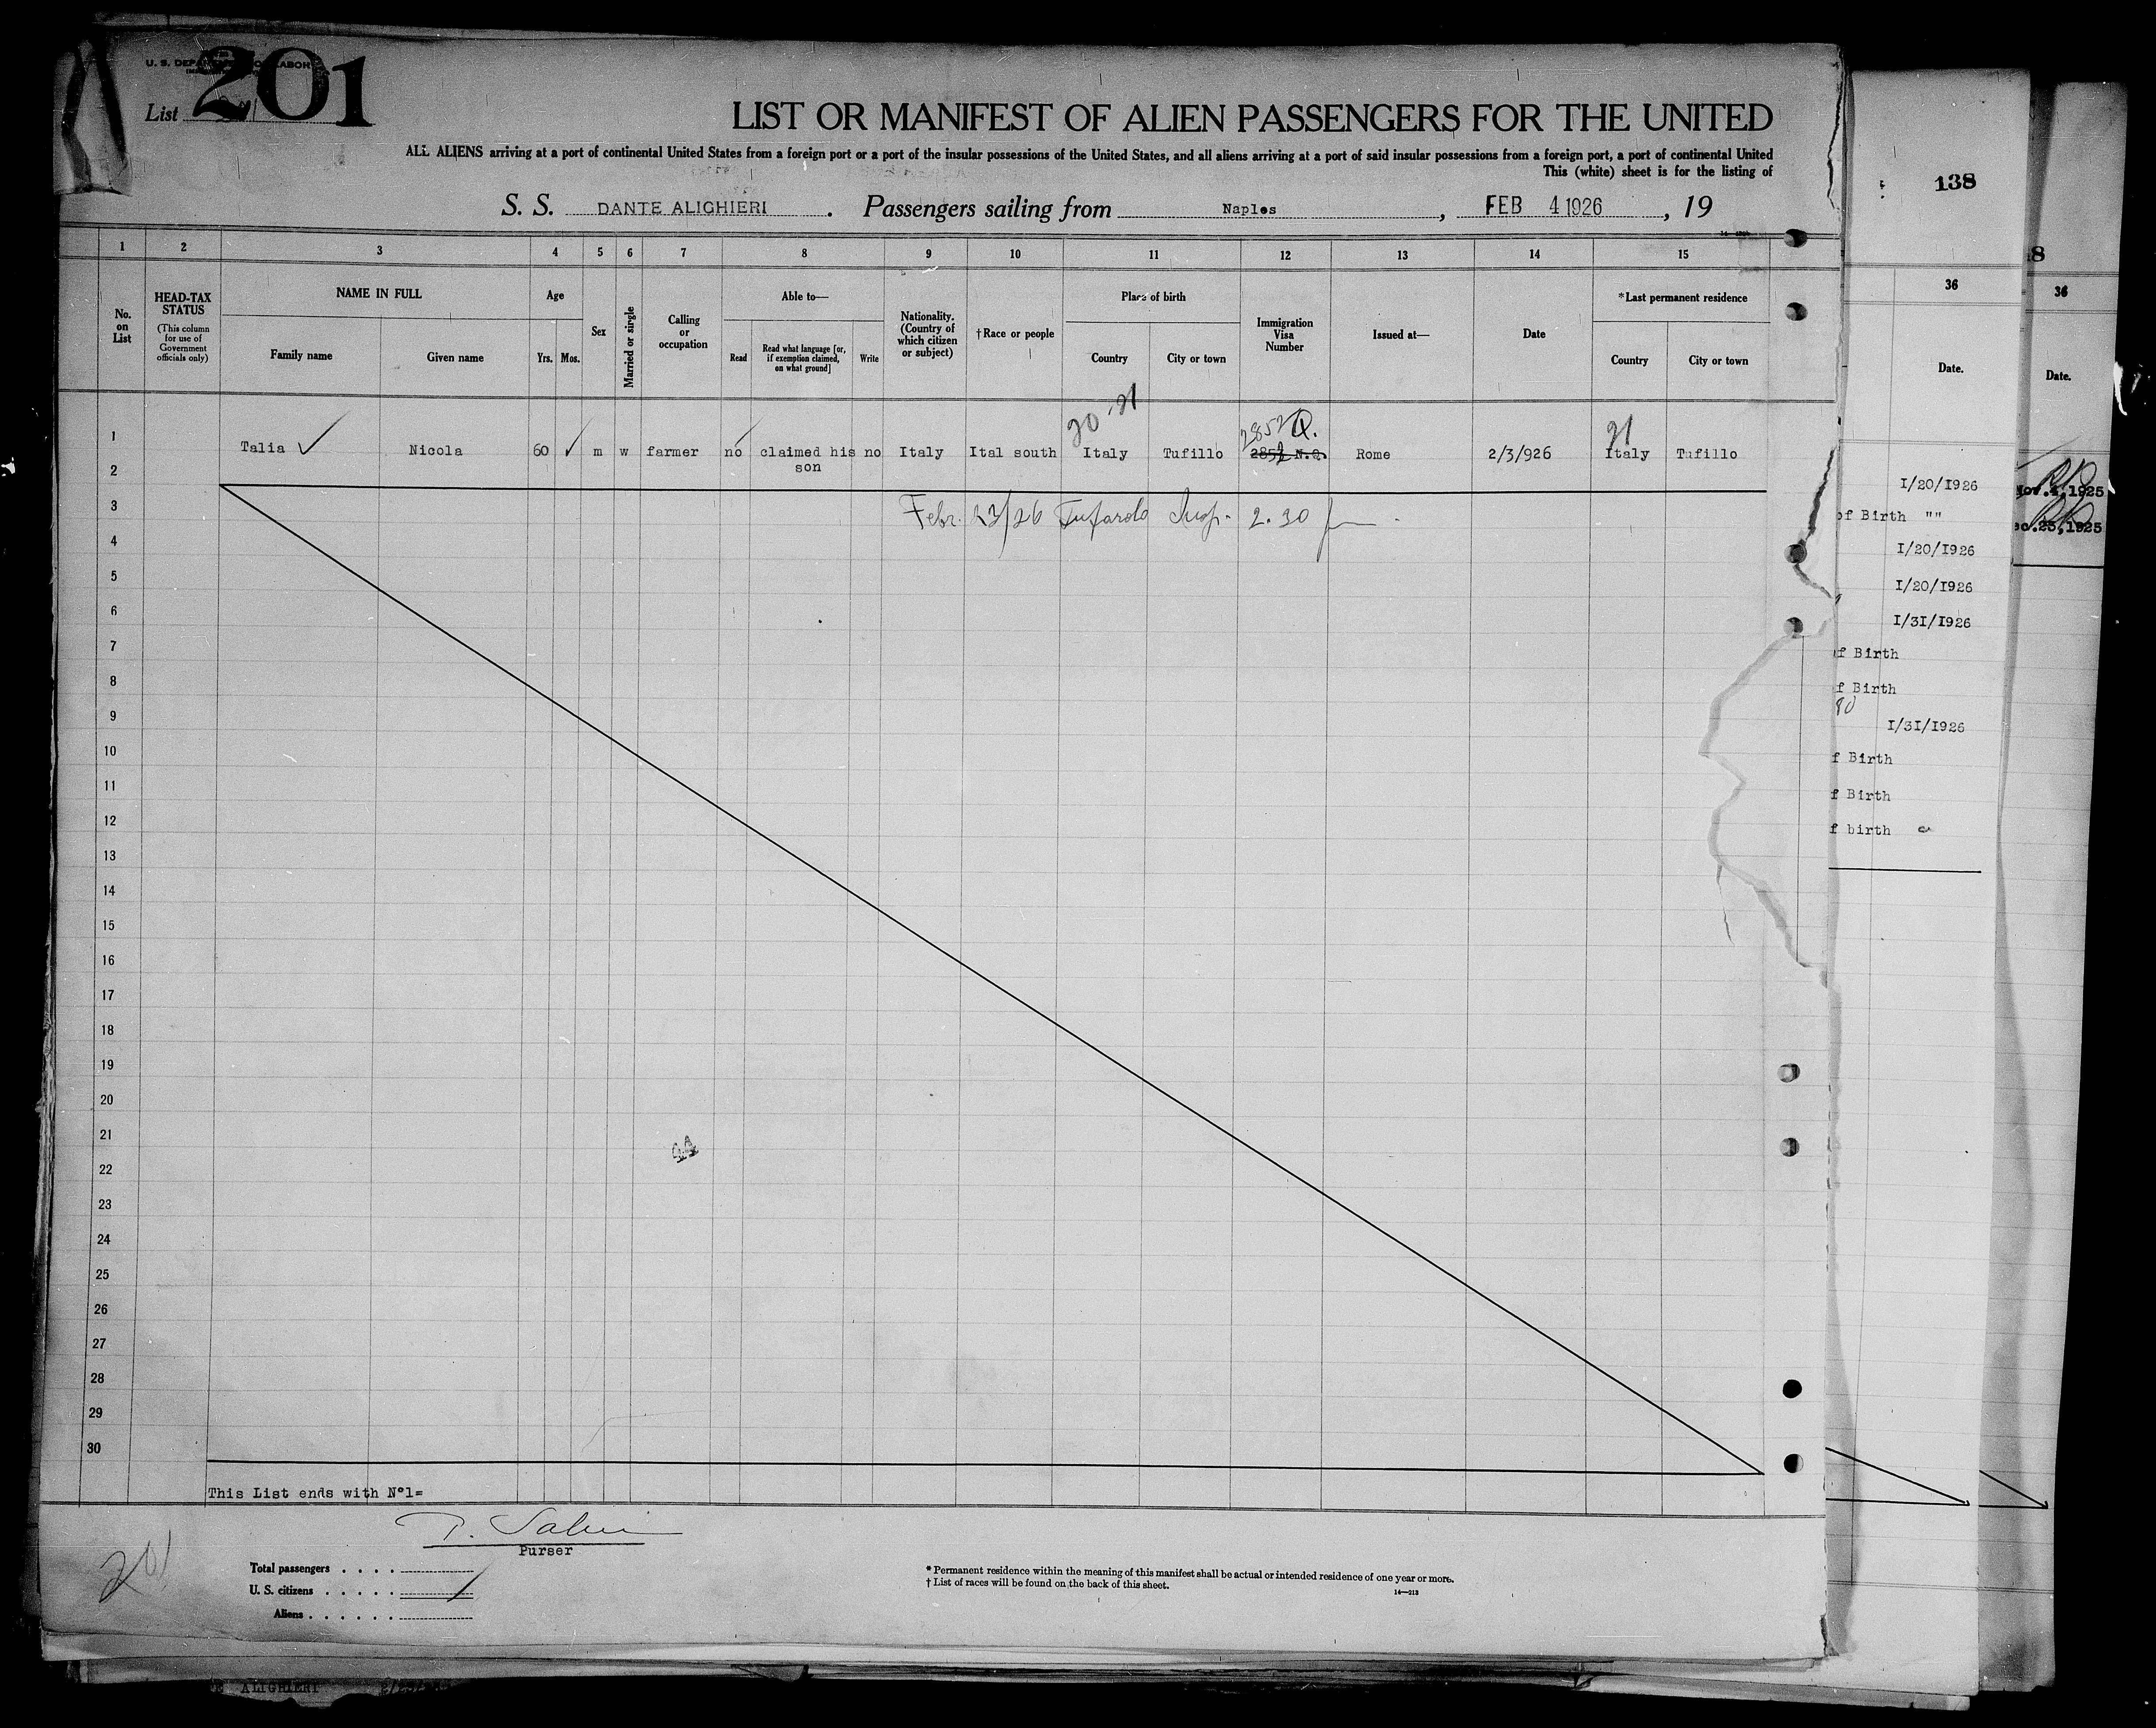 201
U. S. DEPARTMENT OF LABOR
List 201
LIST OR MANIFEST OF ALIEN PASSENGERS FOR THE UNITED
ALL ALIENS arriving at a port of continental United States from a foreign port or a port of the insular possessions of the United States, and all aliens arriving at a port of said insular possessions from a foreign port, a port of continental United
This (white) sheet is for the listing of
S. S. DANTE ALIGHIERI . Passengers sailing from Naples , FEB 4 1926 , 19
1 2 3 4 5 6 7 8 9 10 11 12 13 14 15
No. on List
HEAD-TAX STATUS (This column for use of Government officials only)
NAME IN FULL
Family name Given name
Age
Yrs. Mos.
Sex
Married or single
Calling or occupation
Able to—
Read Read what language [or, if exemption claimed, on what ground] Write
Nationality. (Country of which citizen or subject)
†Race or people
Place of birth
Country City or town
Immigration Visa Number
Issued at—
Date
*Last permanent residence
Country City or town
20 21
2852 Q.
21
1 Talia Nicola 60 m w farmer no claimed his son no Italy Ital south Italy Tufillo 2852 N.Q. Rome 2/3/926 Italy Tufillo
2
3 Febr. 23/26 Insp. 2.30
4
5
6
7
8
9
10
11
12
13
14
15
16
17
18
19
20
21
22
23
24
25
26
27
28
29
30
44
This List ends with Nº1=
Purser
201
Total passengers . . . .
U. S. citizens . . . . .
Aliens . . . . . .
* Permanent residence within the meaning of this manifest shall be actual or intended residence of one year or more.
† List of races will be found on the back of this sheet.
14—213
ALIGHIERI
138
36
Date.
1/20/1926
of Birth ""
1/20/1926
1/20/1926
1/31/1926
f Birth
f Birth
1/31/1926
f Birth
f Birth
f birth
8
36
Date.
Nov.4,1925
ec.25,1925